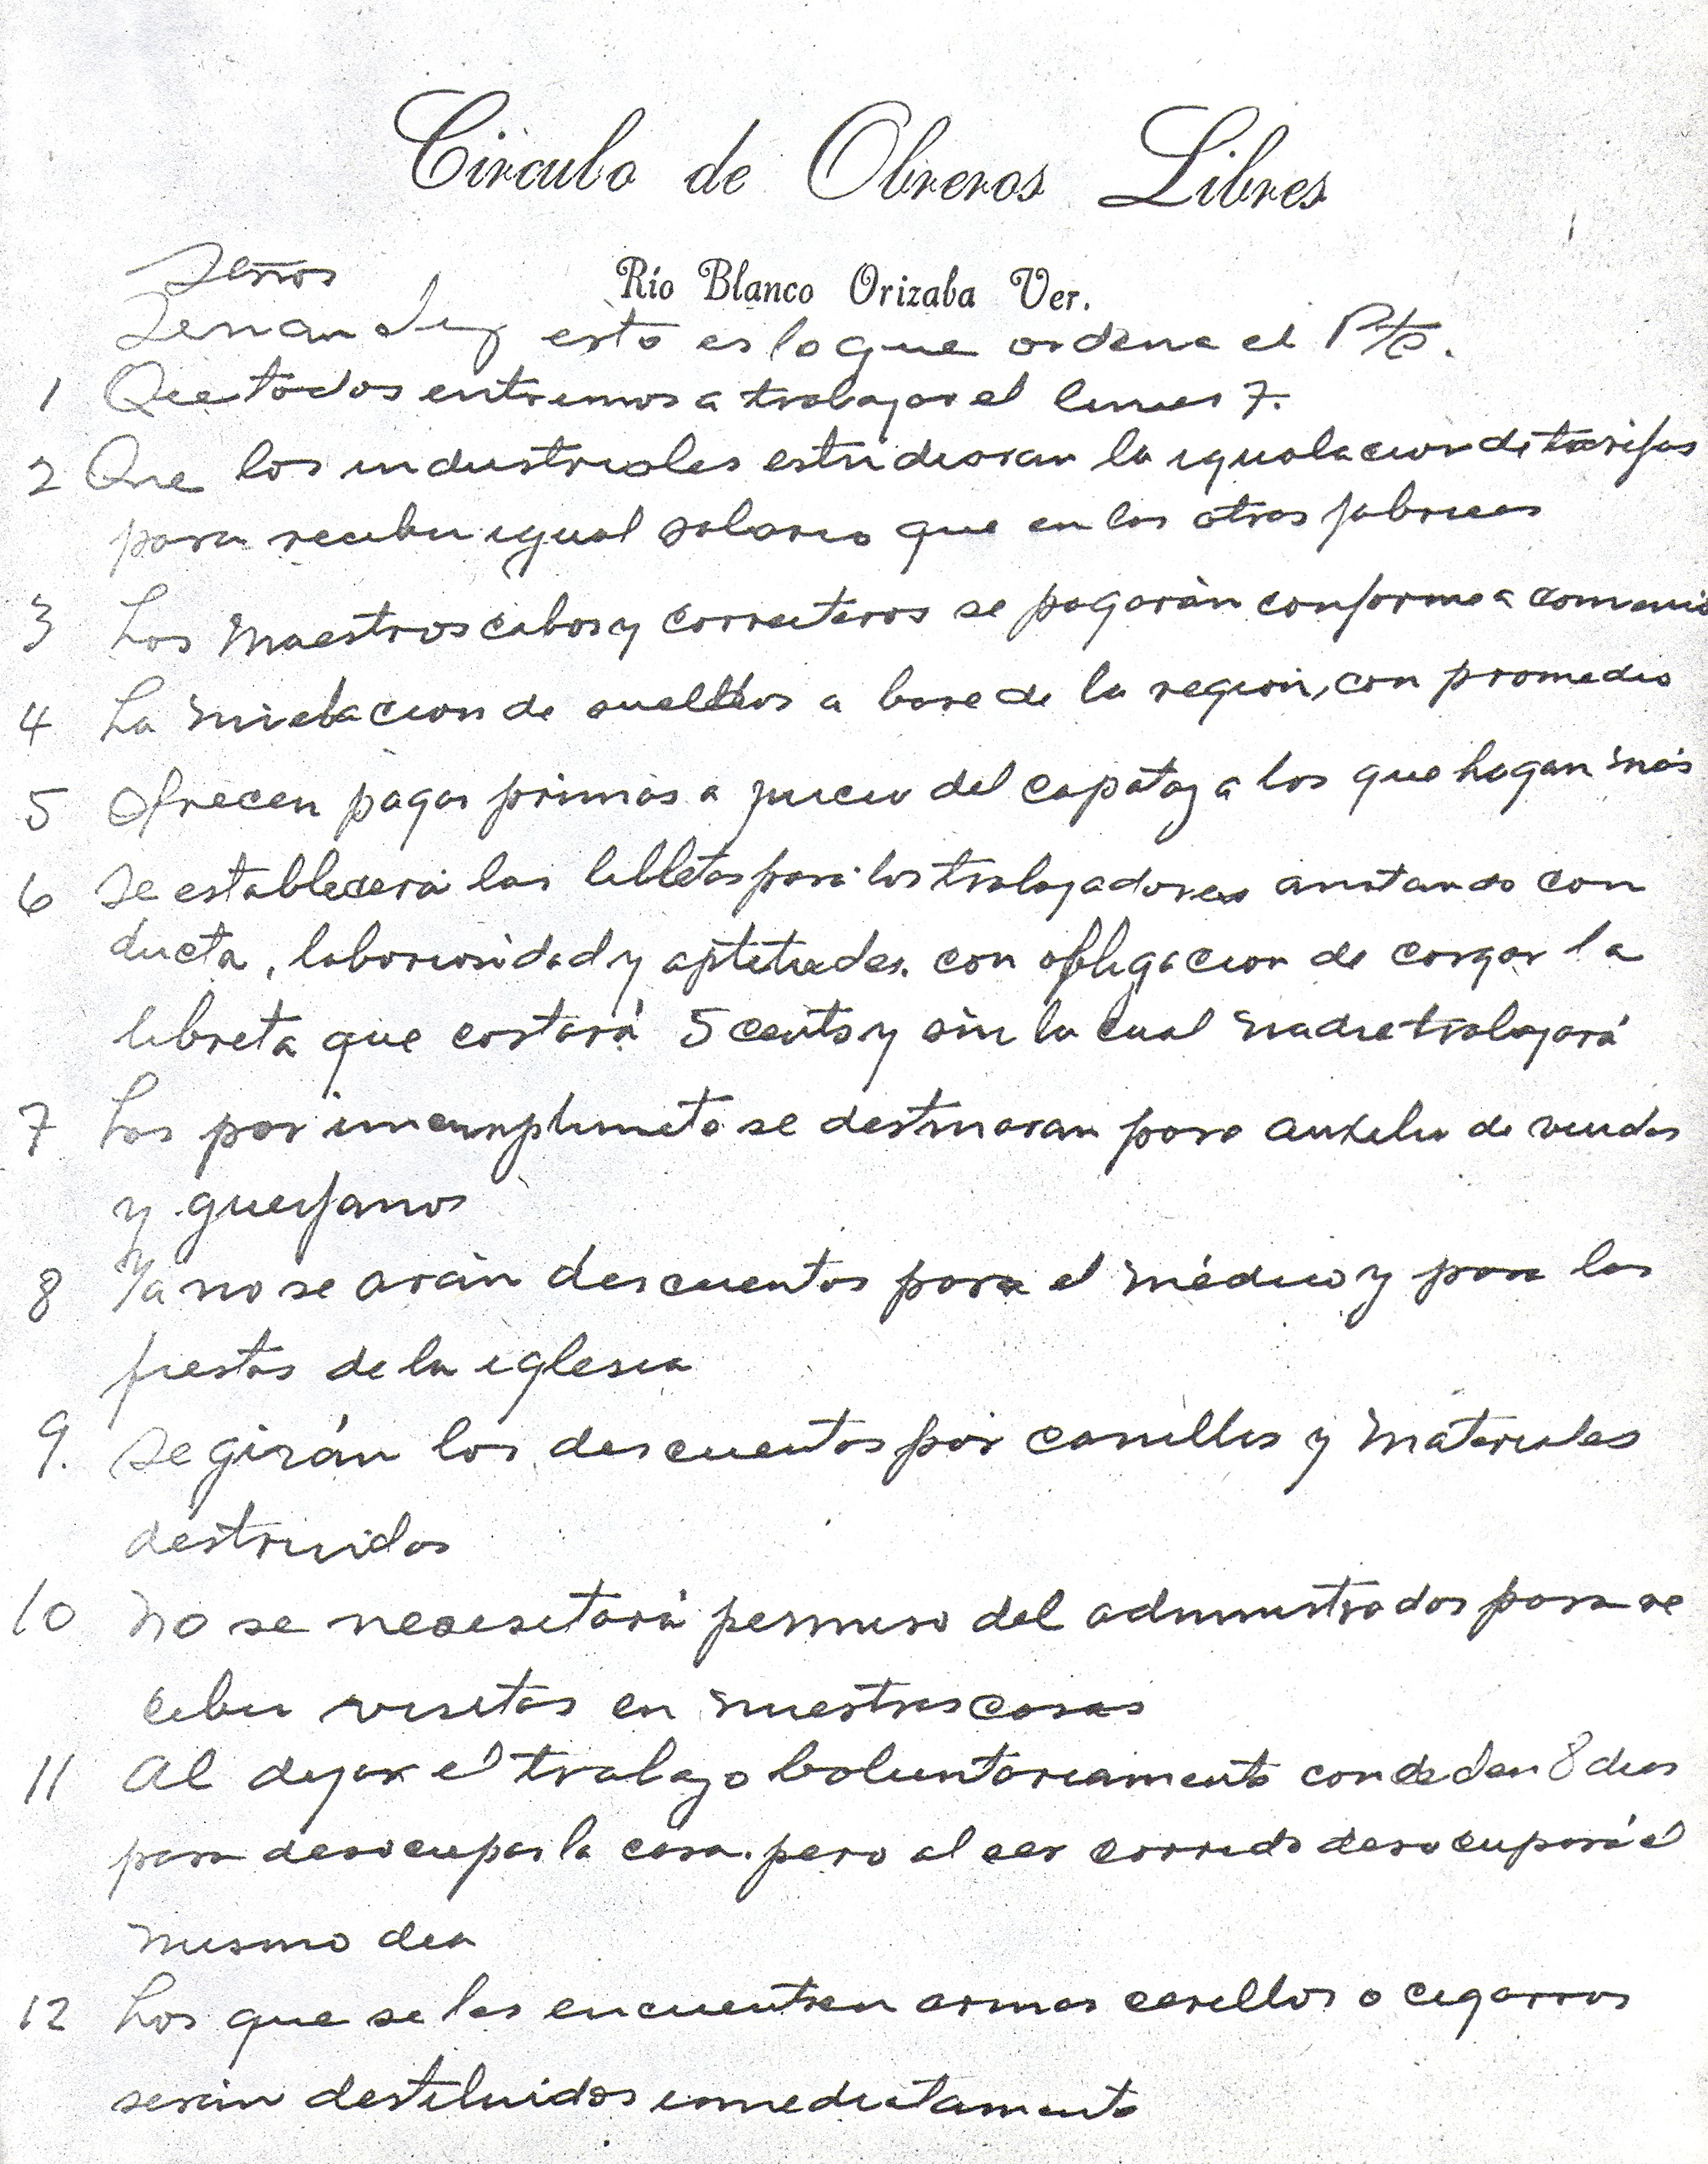 Círculo de Obreros Libres
Río Blanco Orizaba Ver.
Señor
esto es lo que ordena el Pte.
1 Que todos entremos a trabajar el lunes 7.
2 Que los industriales estudiaran la igualacion de tarifas
para recibir igual salario que en las otras fabricas
3 Los Maestros cabos y correiteros se pagarán conforme a convenio
4 La nivelacion de sueldos a base de la region, con promedio
5 Ofrecen pagar primas a juicio del capataz a los que hagan más
6 Se establecerá las libletas para los trabajadores anotando con
ducta, laboriosidad y aptitudes. con obligacion de cargar la
libreta que costará 5 cents y sin la cual nadie trabajará
7 Las por incumplimeto se destinaran para auxilio de viudas
y guerfanos
8 Ya no se arán descuentos para el médico y para las
fiestas de la iglesia
9. Segirán los descuentos por canillas y materiales
destruidos
10 No se necesitará permiso del administrador para re
cibir visitas en nuestras casas
11 Al dejar el trabajo boluntariamente conceden 8 dias
para desocupar la casa. pero al ser corrido desocupará el
mismo dia
12 Los que se les encuentren armas cerillos o cigarros
serán destiluidos inmediatamente